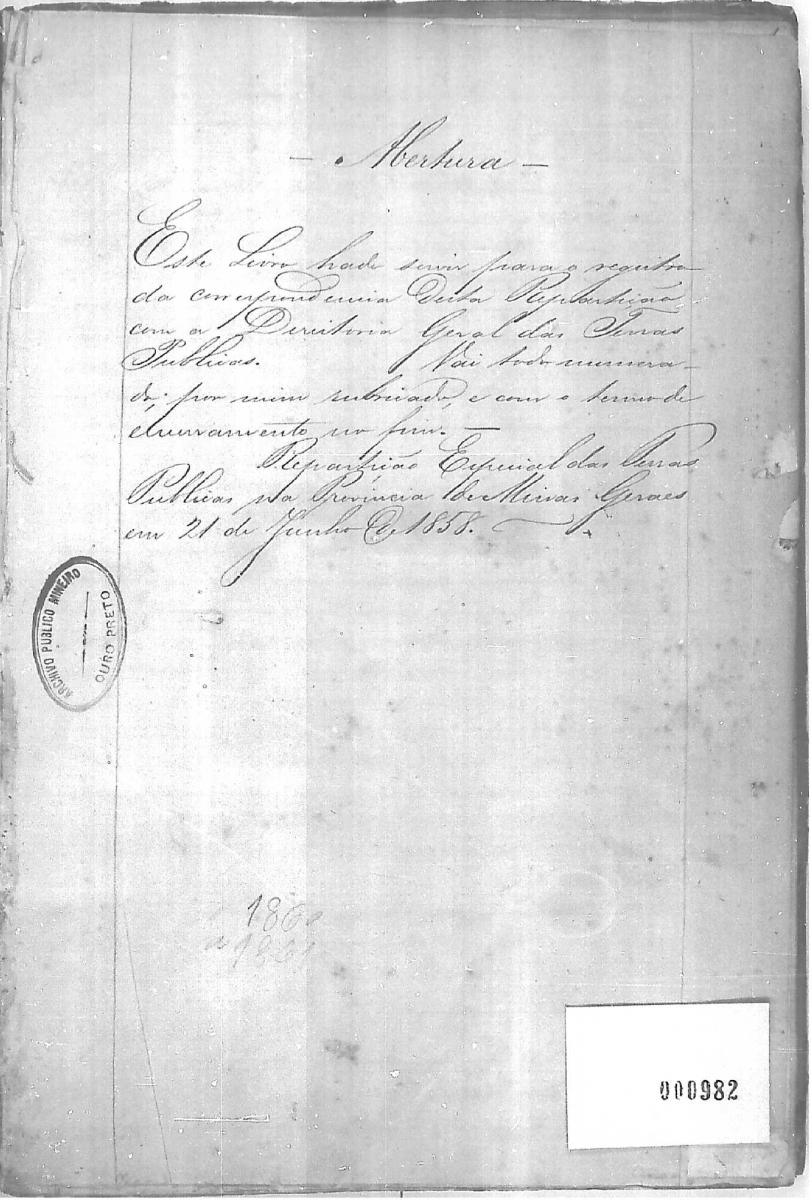 — Abertura —
Este Livro hade servir para o registro
da correspondencia desta Repartição
com a Directoria Geral das Terras
Publicas. Vai todo numera-
do, por mim rubricado, e com o termo de
encerramento no fim. —
Repartição Especial das Terras
Publicas na Provincia de Minas Geraes
em 21 de Junho de 1858.
ARCHIVO PUBLICO MINEIRO
OURO PRETO
1860
a 1861
000982